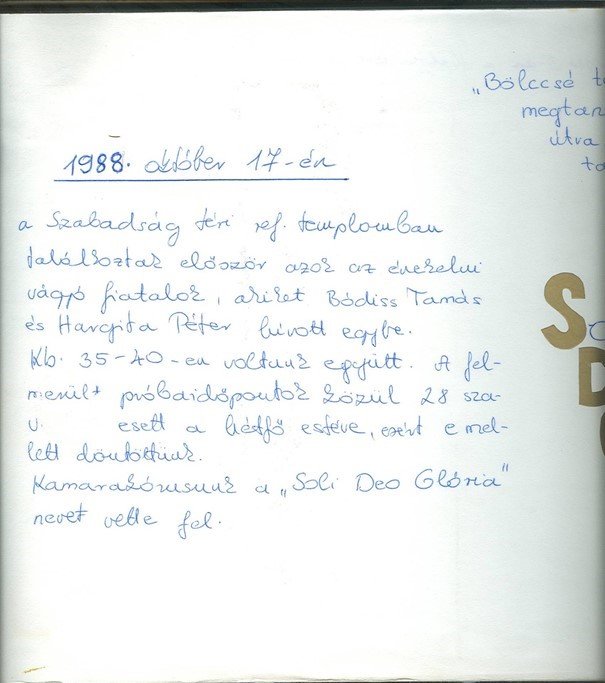 1988. október 17-én
a Szabadság téri ref. templomban
találkoztak először azok az énekelni
vágyó fiatalok, akiket Bódiss Tamás
és Hargita Péter hívott egybe.
Kb. 35-40-en voltunk együtt. A fel-
merült próbaidőpontok közül 28 sza-
v. esett a hétfő estéve, ezért e mel-
lett döntöttünk.
Kamarakórusunk a „Soli Deo Glória"
nevet vette fel.
„Bölccsé t
megtan
útra
ta
S
D